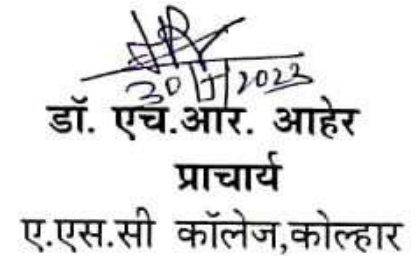 30/1/2023
डॉ. एच.आर. आहेर
प्राचार्य
ए.एस.सी कॉलेज,कोल्हार